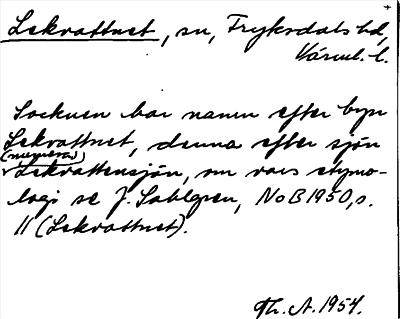 Lekvattnet, sn, Fryksdals hd,
Värml. l.
Socknen bar namn efter byn
Lekvattnet, denna efter sjön
(numera)
Lekvattensjön, om vars etymo-
logi se J. Sahlgren, NoB 1950, s.
11 (Lekvattnet).
Th. A. 1954.